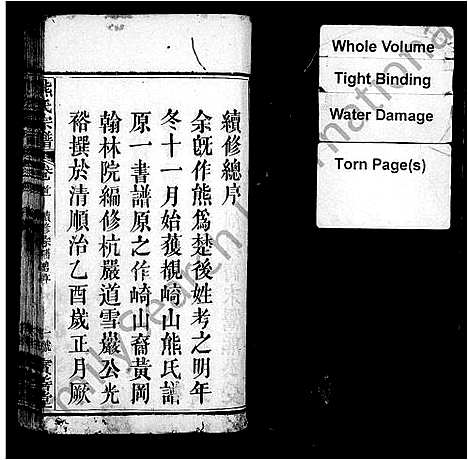 續修總序
余旣作熊爲楚後姓考之明年
冬十一月始獲覩崎山熊氏譜
原一書譜原之作崎山裔黃岡
翰林院編修杭嚴道雪巖公光
裕撰於清順治乙酉歲正月厥
熊氏宗譜
Whole Volume
Tight Binding
Water Damage
Torn Page(s)